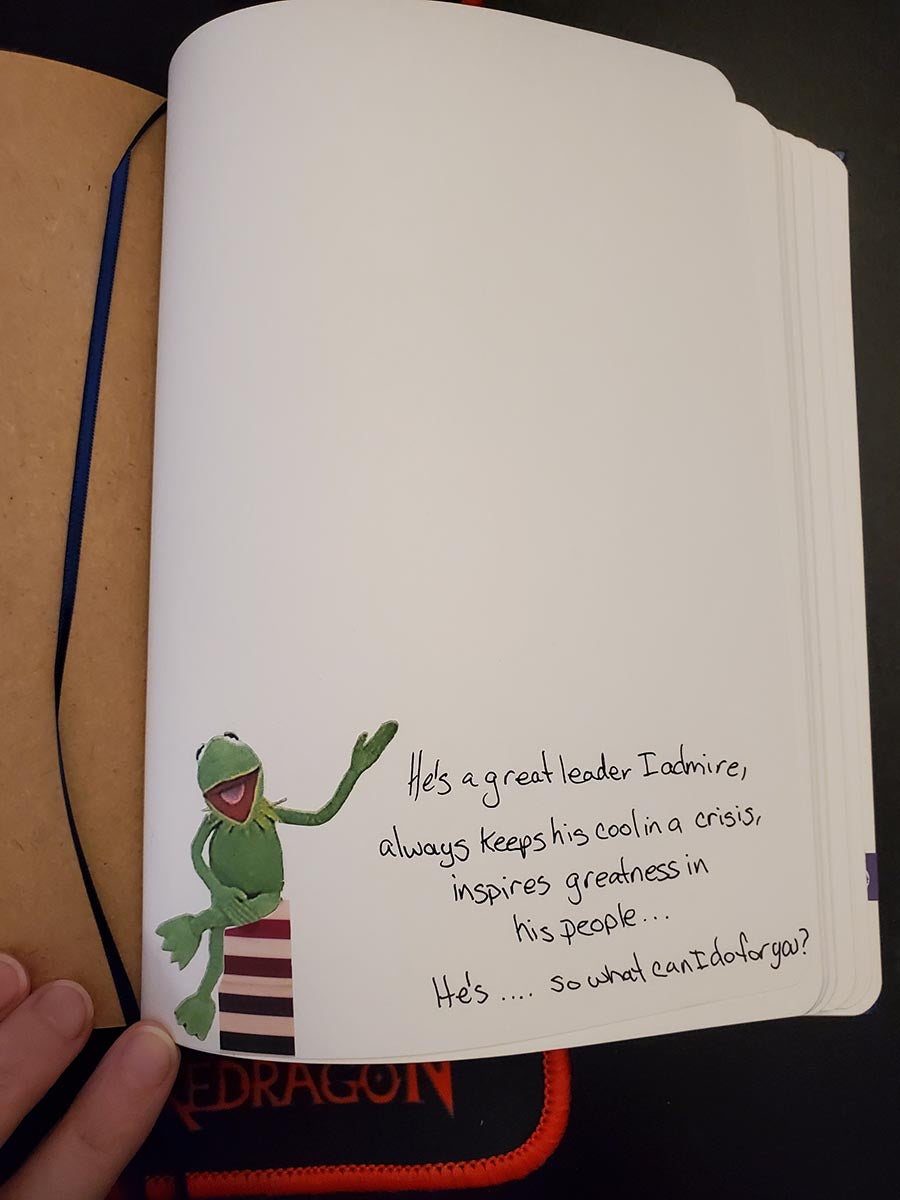 He's a great leader I admire,
always keeps his cool in a crisis,
inspires greatness in
his people...
He's .... so what can I do for you?
REDRAGON